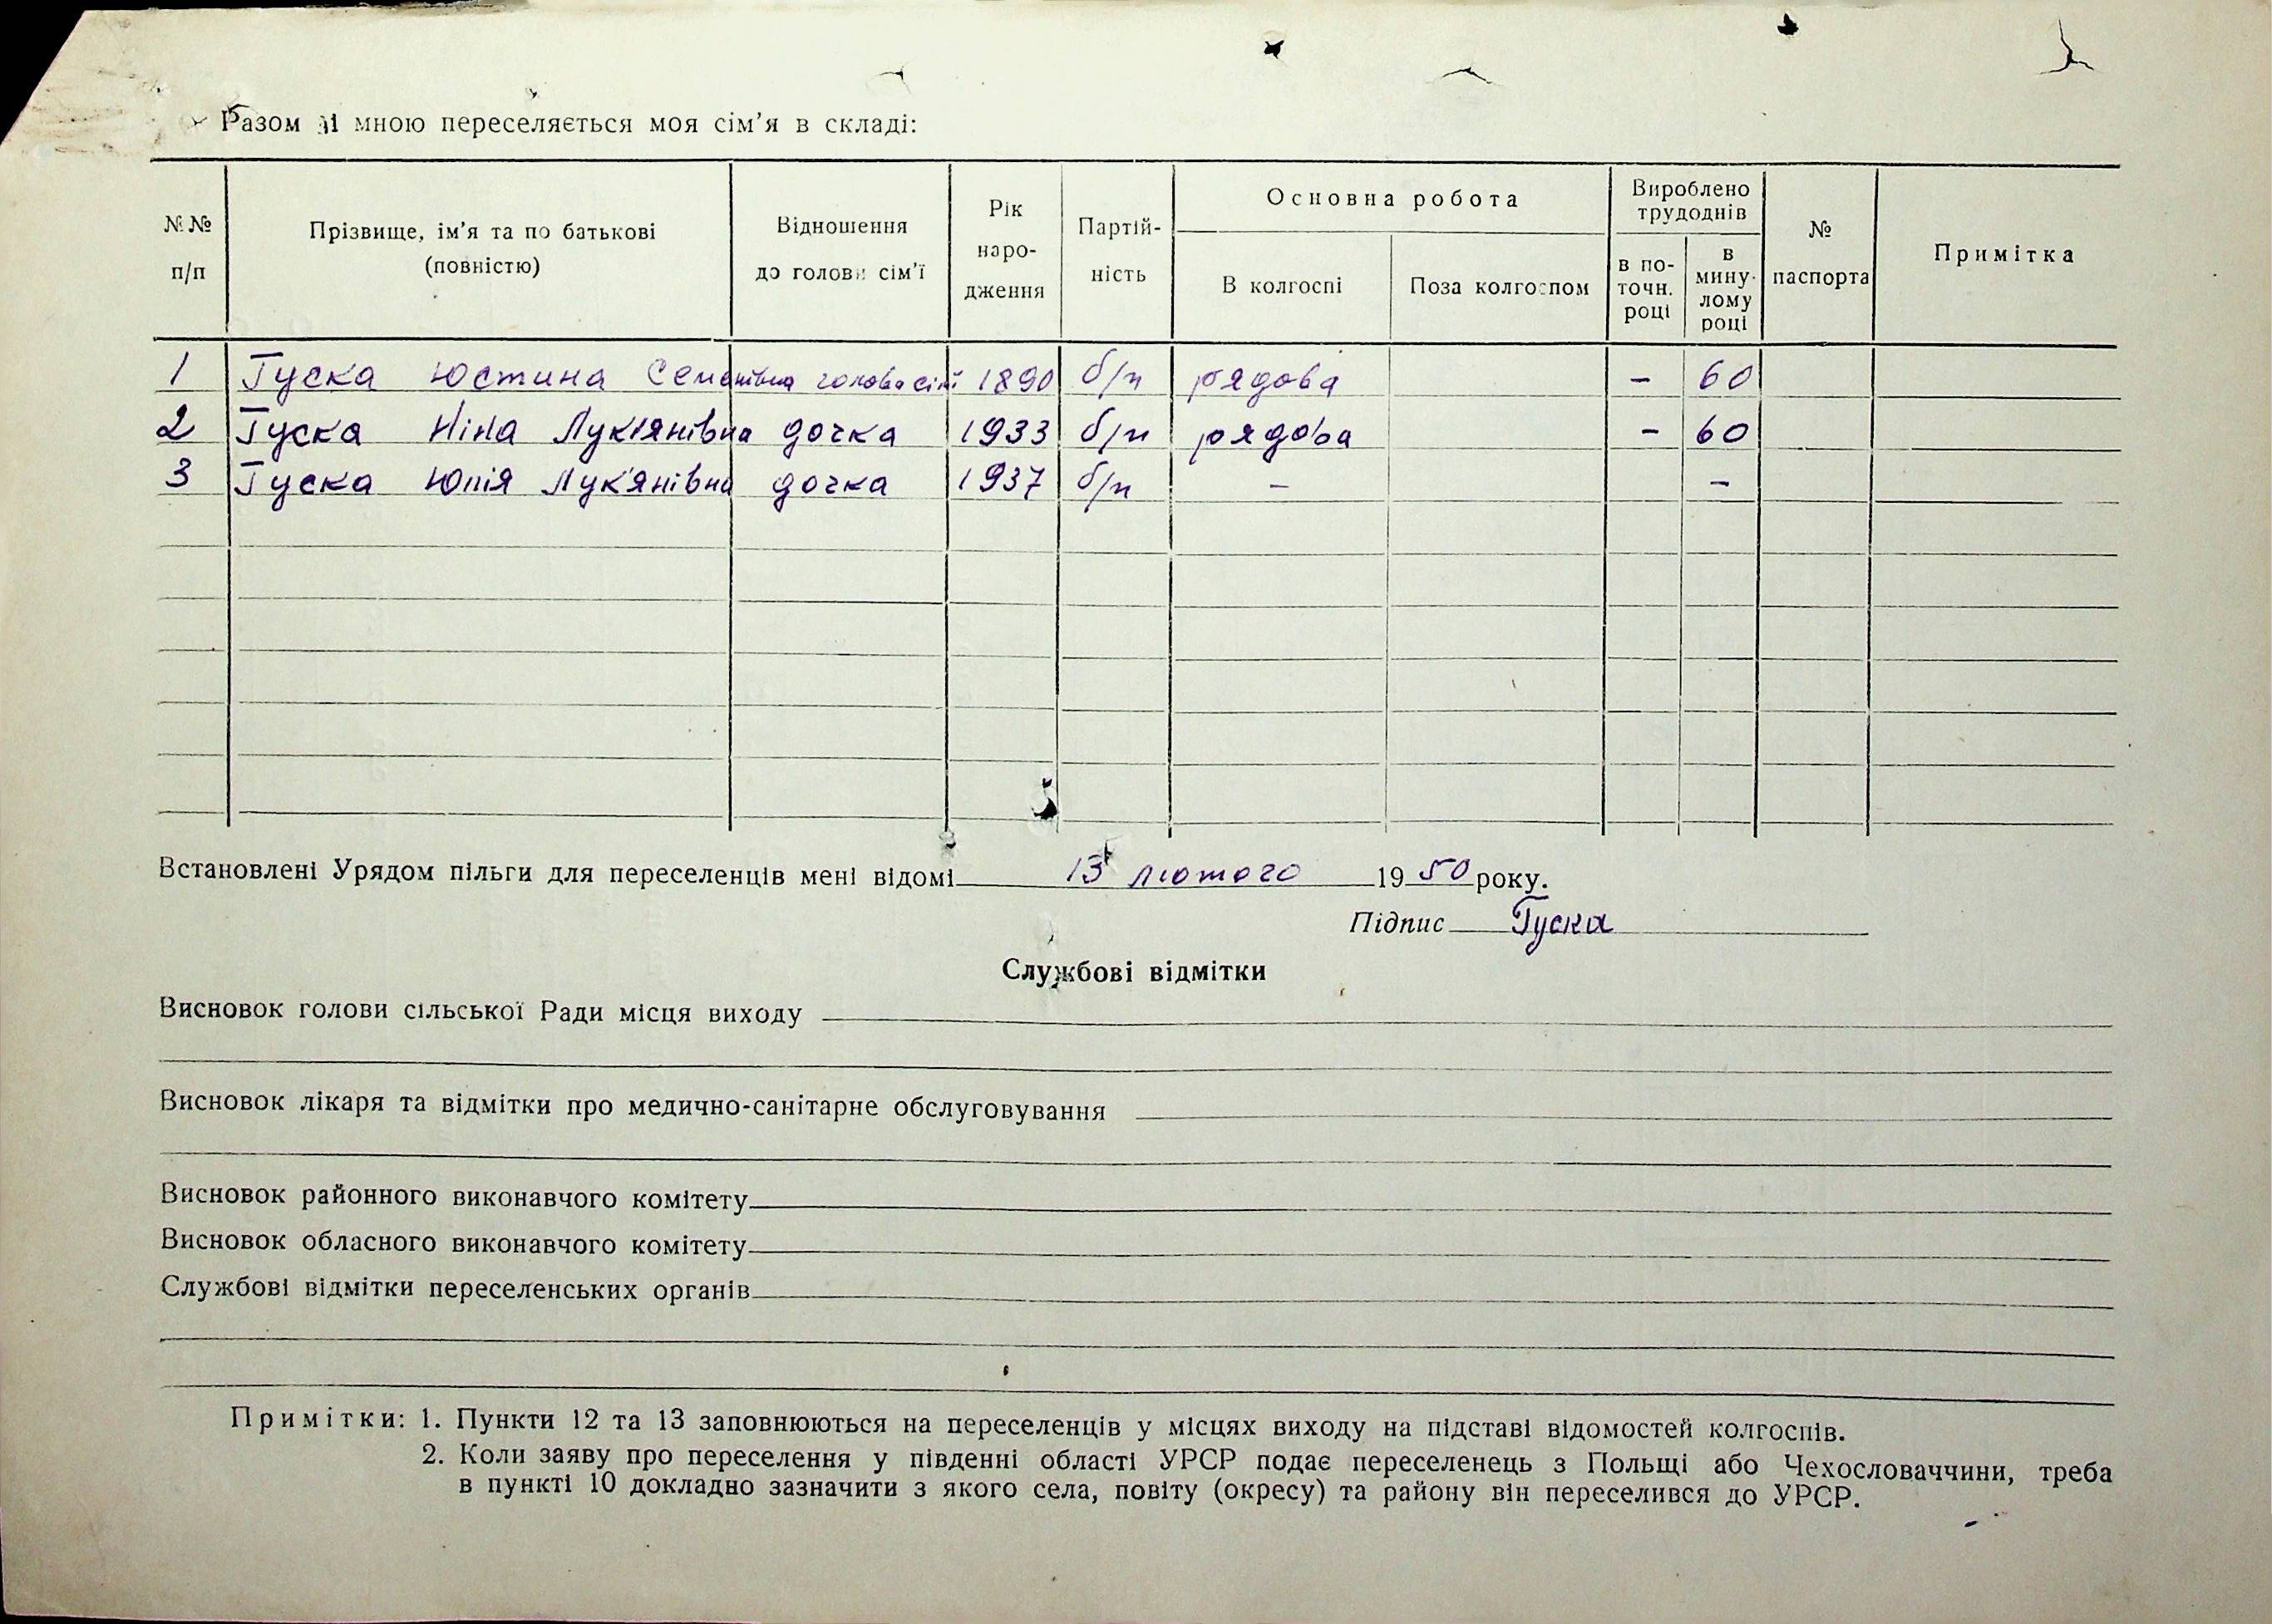 Разом зі мною переселяється моя сім’я в складі:
№№ п/п | Прізвище, ім’я та по батькові (повністю) | Відношення до голови сім’ї | Рік народження | Партійність | Основна робота | Вироблено трудоднів | № паспорта | Примітка
В колгоспі | Поза колгоспом | в поточн. році | в минулому році
1 Гуска Юстина Семенівна голова сім'ї 1890 б/п рядова – 60
2 Гуска Ніна Лук'янівна дочка 1933 б/п рядова – 60
3 Гуска Юлія Лук'янівна дочка 1937 б/п – –
Встановлені Урядом пільги для переселенців мені відомі 13 лютого 1950 року.
Підпис Гуска
Службові відмітки
Висновок голови сільської Ради місця виходу
Висновок лікаря та відмітки про медично-санітарне обслуговування
Висновок районного виконавчого комітету
Висновок обласного виконавчого комітету
Службові відмітки переселенських органів
Примітки: 1. Пункти 12 та 13 заповнюються на переселенців у місцях виходу на підставі відомостей колгоспів.
2. Коли заяву про переселення у південні області УРСР подає переселенець з Польщі або Чехословаччини, треба
в пункті 10 докладно зазначити з якого села, повіту (окресу) та району він переселився до УРСР.